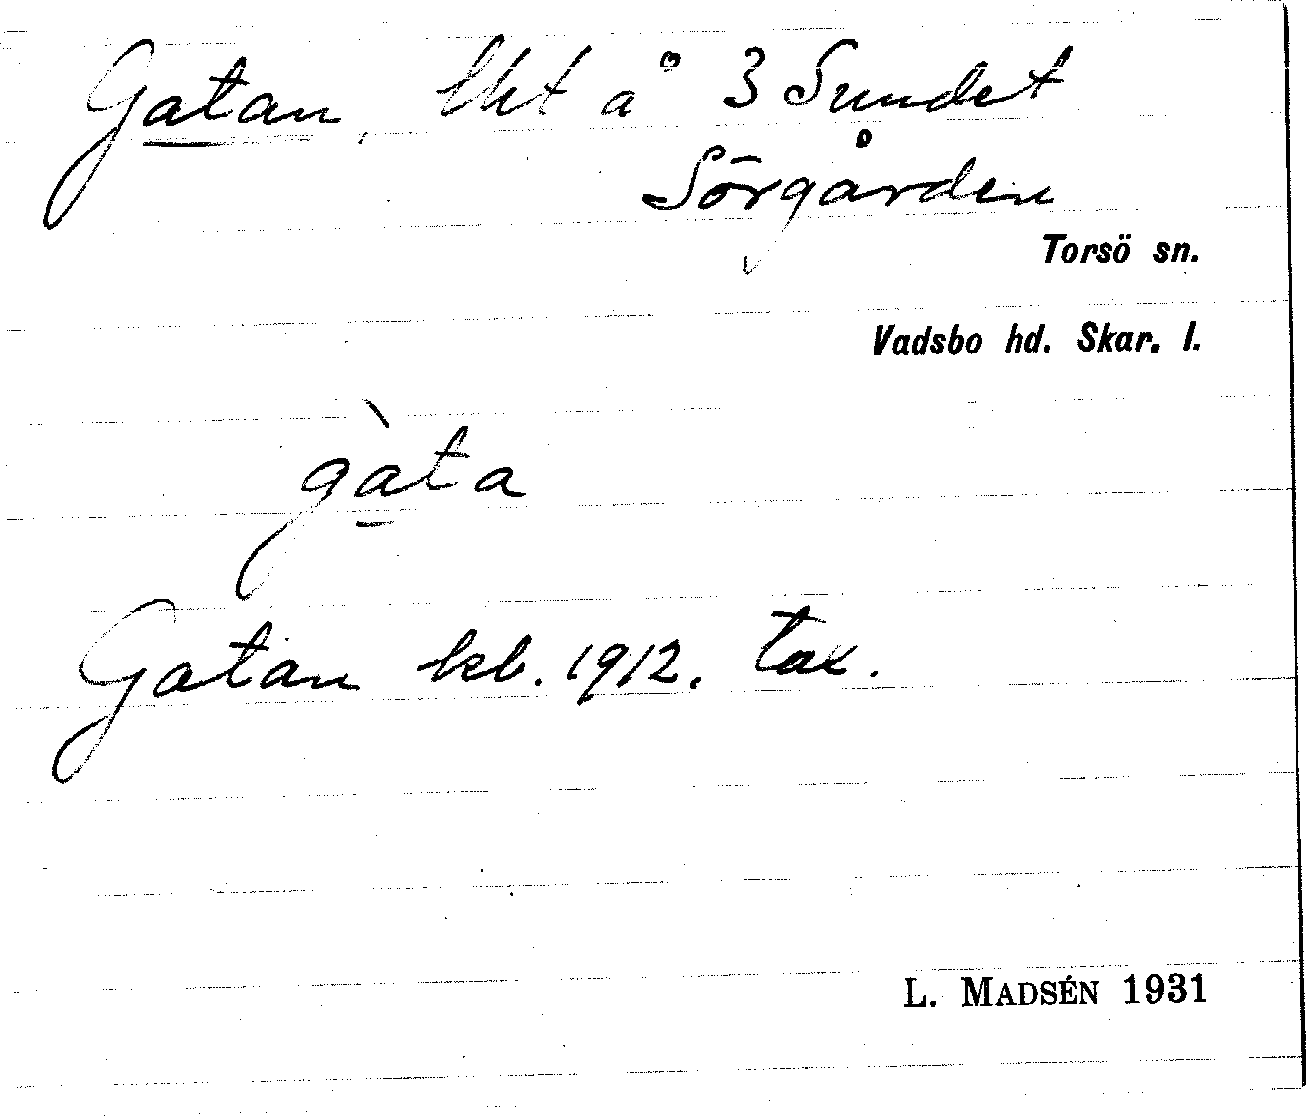 Gatan, lht å 3 Sundet
Sörgården
Torsö sn.
Vadsbo hd. Skar. l.
gàta
Gatan kb. 1912. tax.
L. MADSÉN 1931